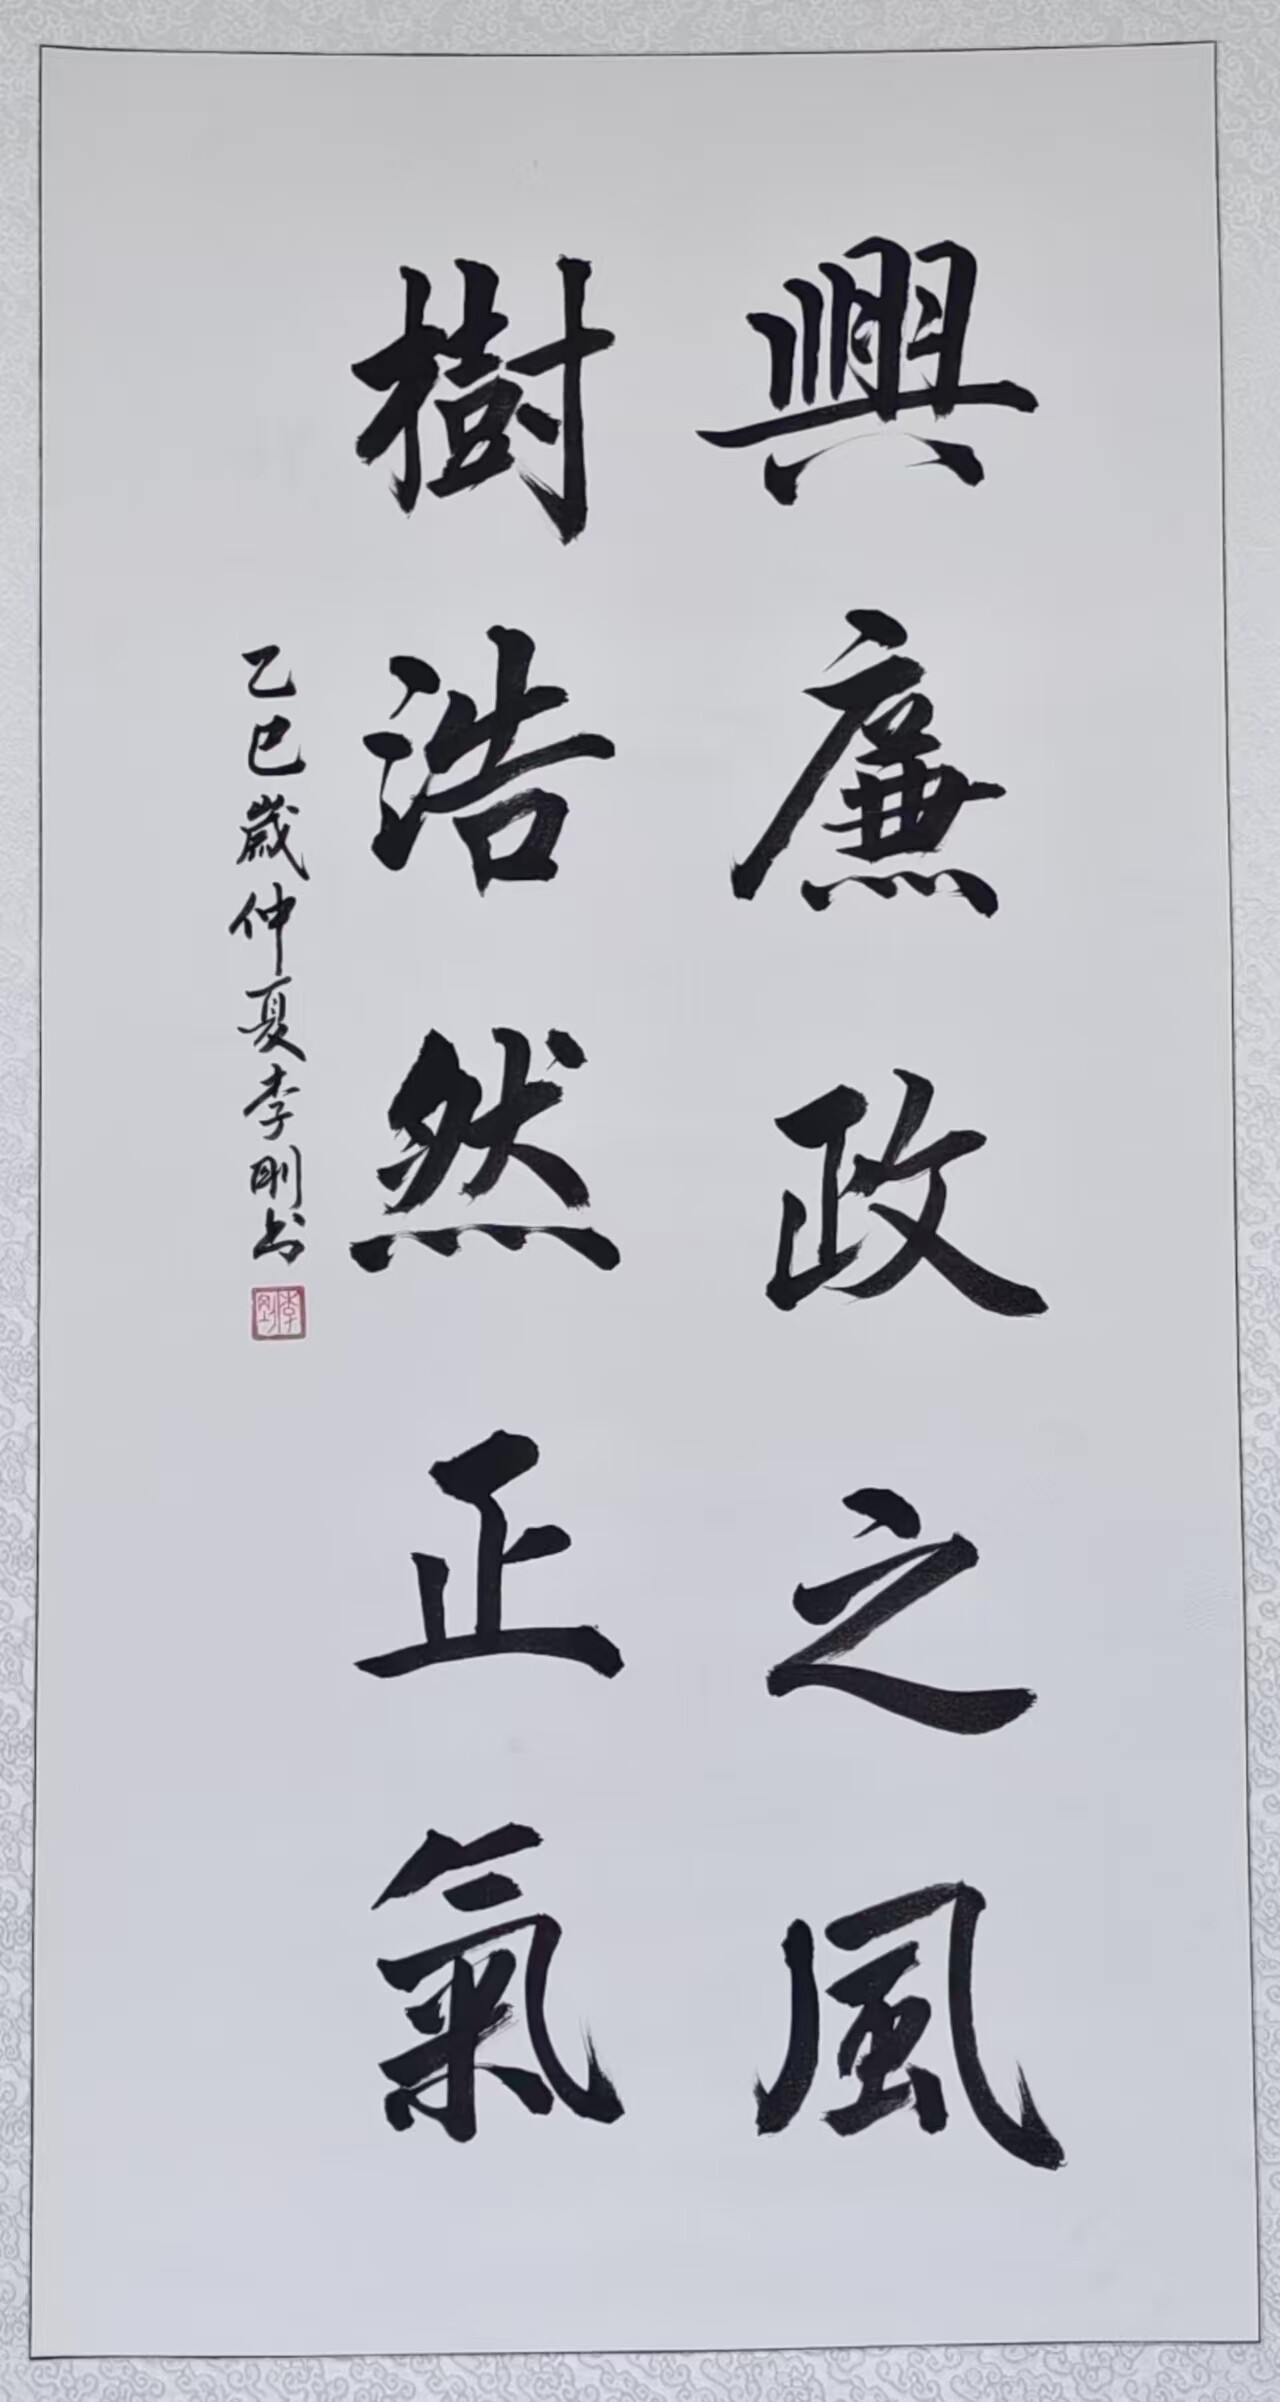 興廉政之風
樹浩然正氣
乙巳歲仲夏李刚书
李刚